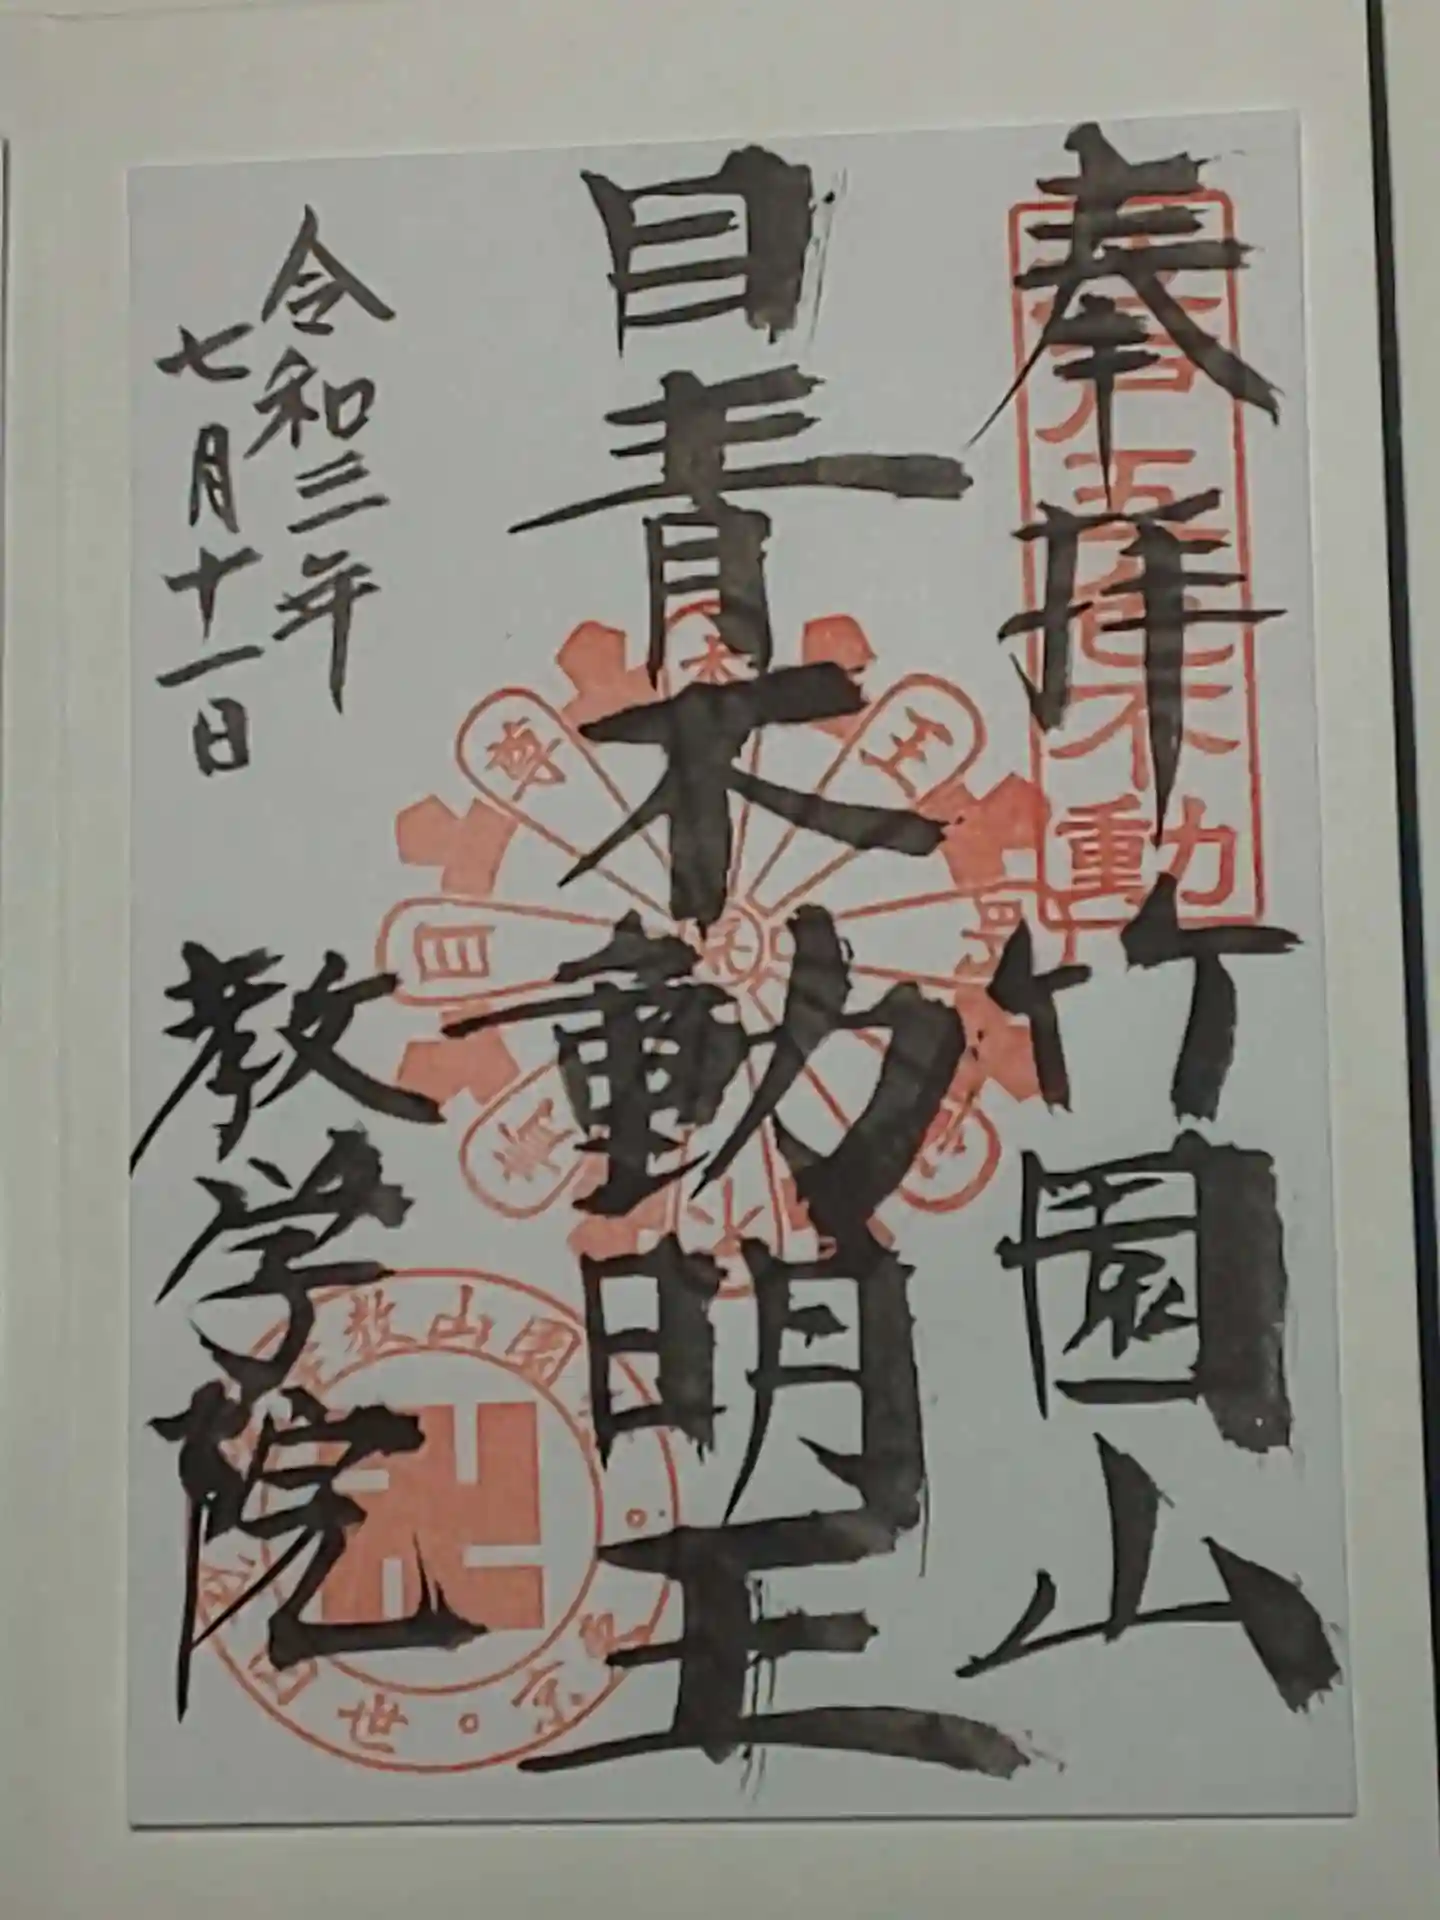 奉拝 竹園山
目青不動明王
令和三年
七月十一日
教学院
五色不動